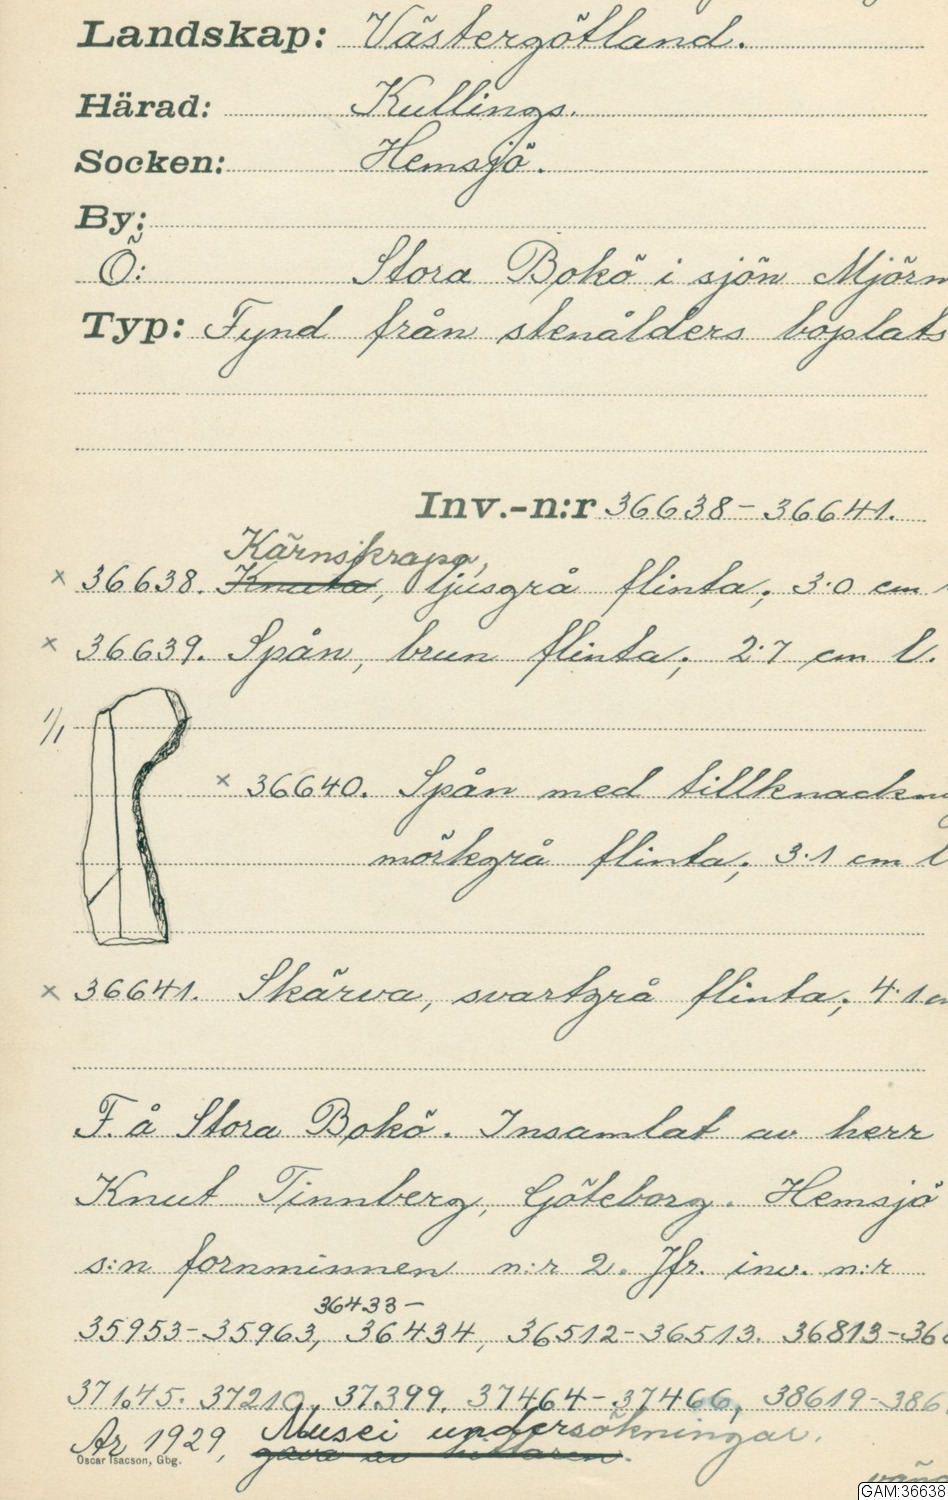 Landskap: Västergötland.
Härad: Kullings.
Socken: Hemsjö.
By:
Ö: Stora Bokö i sjön Mjörn
Typ: Fynd från stenålders boplats
Inv.-n:r 36638-36641.
Kärnskrapa,
× 36638. Knuta, ljusgrå flinta; 3·0 cm
× 36639. Spån, brun flinta; 2·7 cm l.
1/1
× 36640. Spån med tillknackn
mörkgrå flinta; 3·1 cm l
× 36641. Skärva, svartgrå flinta; 4·1 c
F. å Stora Bokö. Insamlat av herr
Knut Tinnberg, Göteborg. Hemsjö
s:n fornminnen n:r 2. Jfr. inv. n:r
36433-
35953-35963, 36434, 36512-36513. 36813-36
37145. 37210, 37399. 37464-37466, 38619-386
År 1929, Musei undersökningar.
gåva av hittaren.
Oscar Isacson, Gbg.
GAM:36638